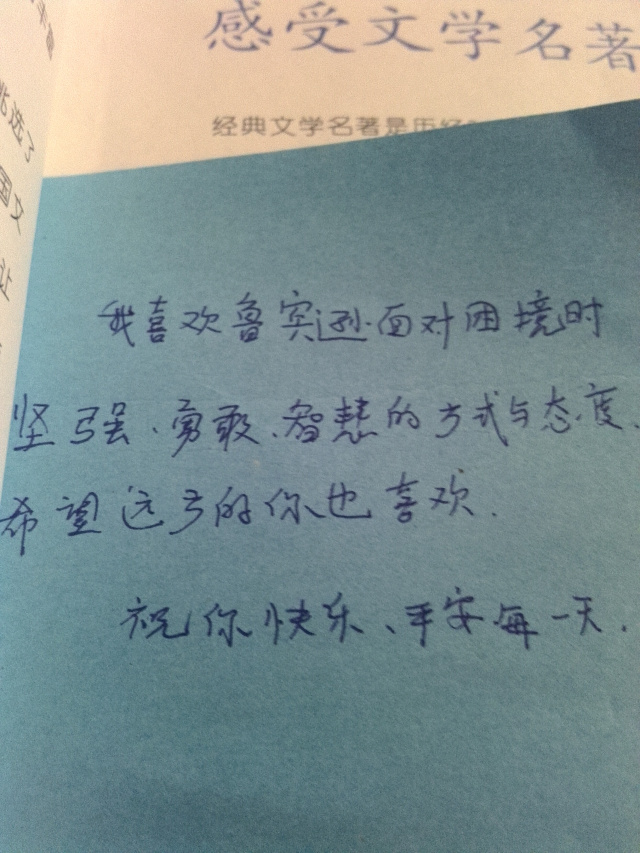 感受文学名著
经典文学名著是历经
选了
国文
让
我喜欢鲁宾逊面对困境时
坚强、勇敢、智慧的方式与态度.
希望远方的你也喜欢.
祝你快乐、平安每一天.